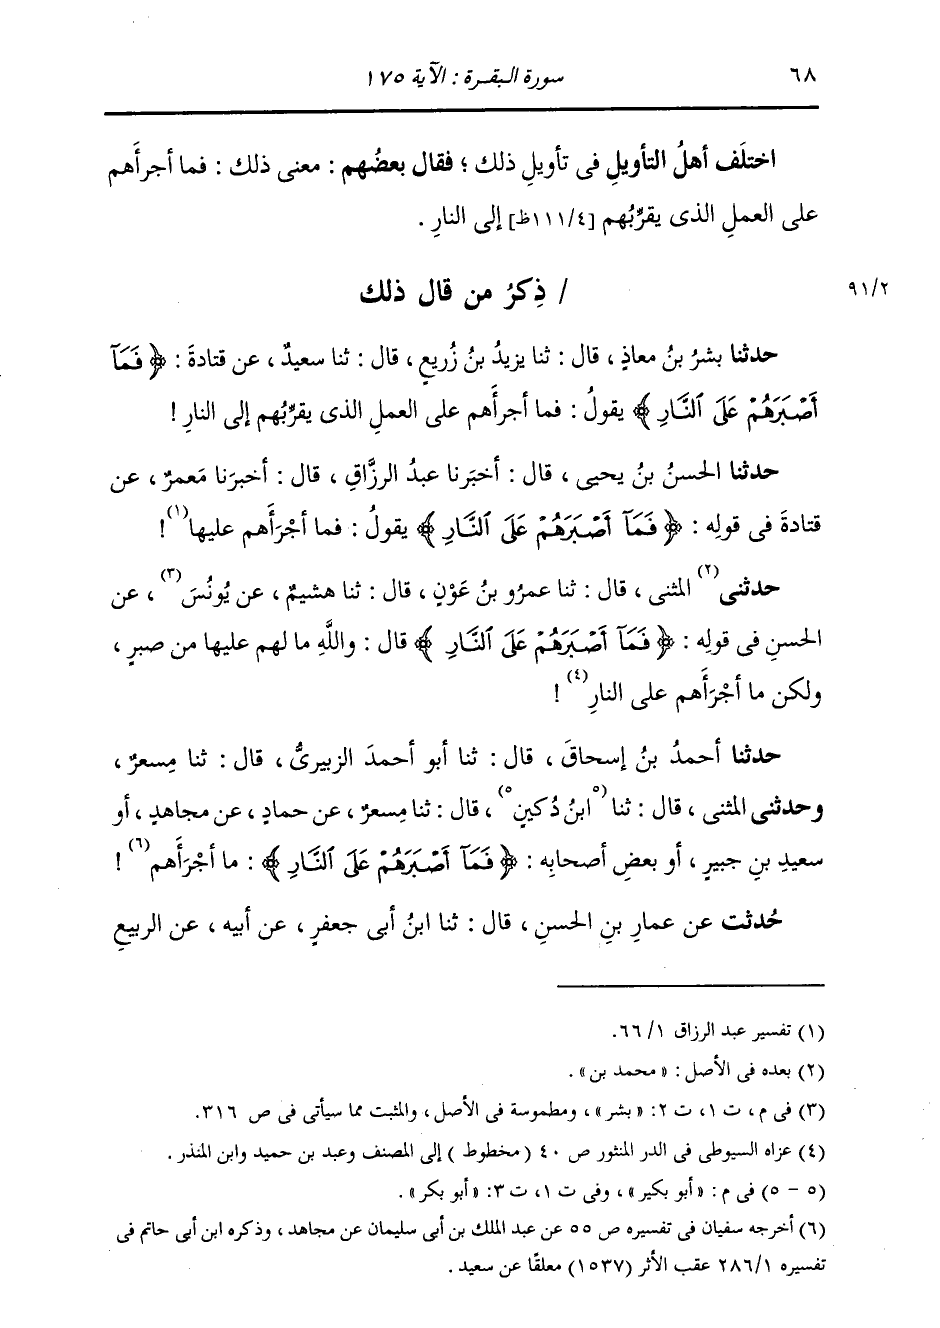 ٦٨ سورة البقرة : الآية ١٧٥
اختلَف أهلُ التأويلِ فى تأويلِ ذلك ؛ فقال بعضُهم : معنى ذلك : فما أجرأَهم
على العملِ الذى يقرِّبُهم [٤/ ١١١ظ] إلى النارِ .
٩١/٢ / ذِكرُ من قال ذلك
حدثنا بشرُ بنُ معاذٍ ، قال : ثنا يزيدُ بنُ زُريعٍ ، قال : ثنا سعيدٌ ، عن قتادةَ : ﴿ فَمَآ
أَصْبَرَهُمْ عَلَى ٱلنَّارِ ﴾ يقولُ : فما أجرأَهم على العملِ الذى يقرِّبُهم إلى النارِ !
حدثنا الحسنُ بنُ يحيى ، قال : أخبَرنا عبدُ الرزَّاقِ ، قال : أخبرَنا مَعمرٌ ، عن
قتادةَ فى قولِه : ﴿ فَمَآ أَصْبَرَهُمْ عَلَى ٱلنَّارِ ﴾ يقولُ : فما أجْرَأَهم عليها(١) !
حدثنى(٢) المثنى ، قال : ثنا عمرُو بنُ عَوْنٍ ، قال : ثنا هشيمٌ ، عن يُونُسَ(٣) ، عن
الحسنِ فى قولِه : ﴿ فَمَآ أَصْبَرَهُمْ عَلَى ٱلنَّارِ ﴾ قال : واللَّهِ ما لهم عليها من صبرٍ ،
ولكن ما أجْرَأَهم على النارِ(٤) !
حدثنا أحمدُ بنُ إسحاقَ ، قال : ثنا أبو أحمدَ الزبيرىُّ ، قال : ثنا مِسعرٌ ،
وحدثنى المثنى ، قال : ثنا (٥ابنُ دُكينٍ٥) ، قال : ثنا مِسعرٌ ، عن حمادٍ ، عن مجاهدٍ ، أو
سعيدِ بنِ جبيرٍ ، أو بعضِ أصحابِه : ﴿ فَمَآ أَصْبَرَهُمْ عَلَى ٱلنَّارِ ﴾ : ما أجْرَأَهم(٦) !
حُدثت عن عمارِ بنِ الحسنِ ، قال : ثنا ابنُ أبى جعفرٍ ، عن أبيه ، عن الربيعِ
(١) تفسير عبد الرزاق ١/ ٦٦.
(٢) بعده فى الأصل : « محمد بن » .
(٣) فى م ، ت ١، ت ٢: « بشر » ، ومطموسة فى الأصل ، والمثبت مما سيأتى فى ص ٣١٦.
(٤) عزاه السيوطى فى الدر المنثور ص ٤٠ ( مخطوط ) إلى المصنف وعبد بن حميد وابن المنذر .
(٥ - ٥) فى م : « أبو بكير » ، وفى ت ١، ت ٣: « أبو بكر » .
(٦) أخرجه سفيان فى تفسيره ص ٥٥ عن عبد الملك بن أبى سليمان عن مجاهد ، وذكره ابن أبى حاتم فى
تفسيره ٢٨٦/١ عقب الأثر (١٥٣٧) معلقًا عن سعيد .